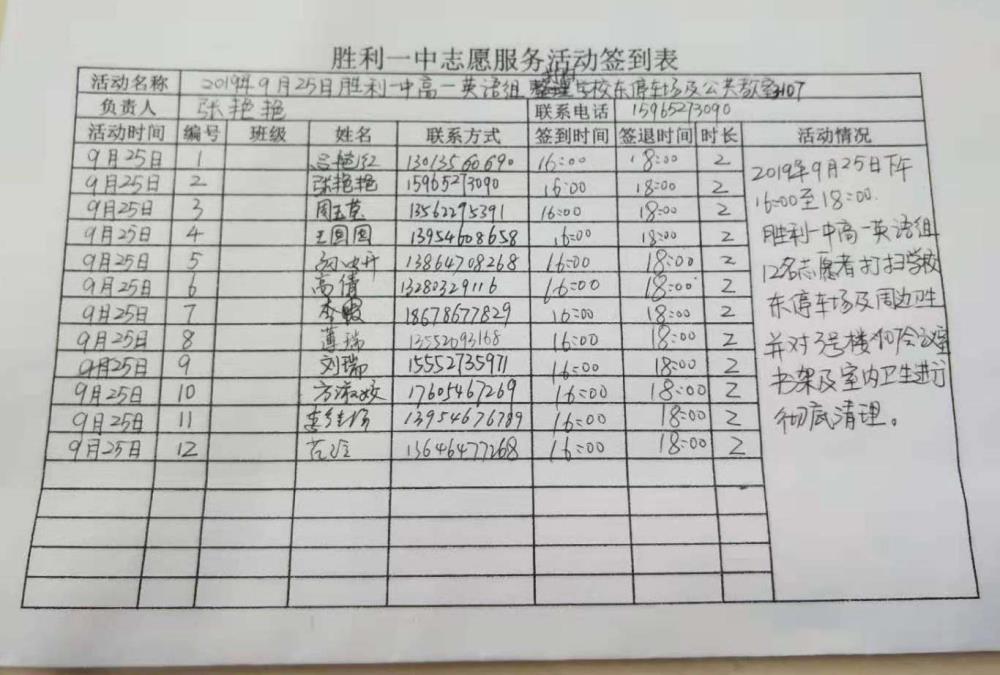 胜利一中志愿服务活动签到表
活动名称 2019年9月25日胜利一中高一英语组 整理学校东停车场及公共教室3107
负责人 张艳艳 联系电话 15965273090
活动时间 编号 班级 姓名 联系方式 签到时间 签退时间 时长 活动情况
9月25日 1 吕艳红 13013560690 16:00 18:00 2
9月25日 2 张艳艳 15965273090 16:00 18:00 2
9月25日 3 周玉蕊 13562295391 16:00 18:00 2
9月25日 4 王圆圆 13954608658 16:00 18:00 2
9月25日 5 13864708268 16:00 18:00 2
9月25日 6 高倩 13280329116 16:00 18:00 2
9月25日 7 李霞 18678677829 16:00 18:00 2
9月25日 8 薄瑞 13552093168 16:00 18:00 2
9月25日 9 刘瑞 15552735971 16:00 18:00 2
9月25日 10 17605467269 16:00 18:00 2
9月25日 11 13954676789 16:00 18:00 2
9月25日 12 范玲 13646477268 16:00 18:00 2
2019年9月25日下午
16:00至18:00.
胜利一中高一英语组
12名志愿者打扫学校
东停车场及周边卫生
并对3号楼107会议室
书架及室内卫生进行
彻底清理。